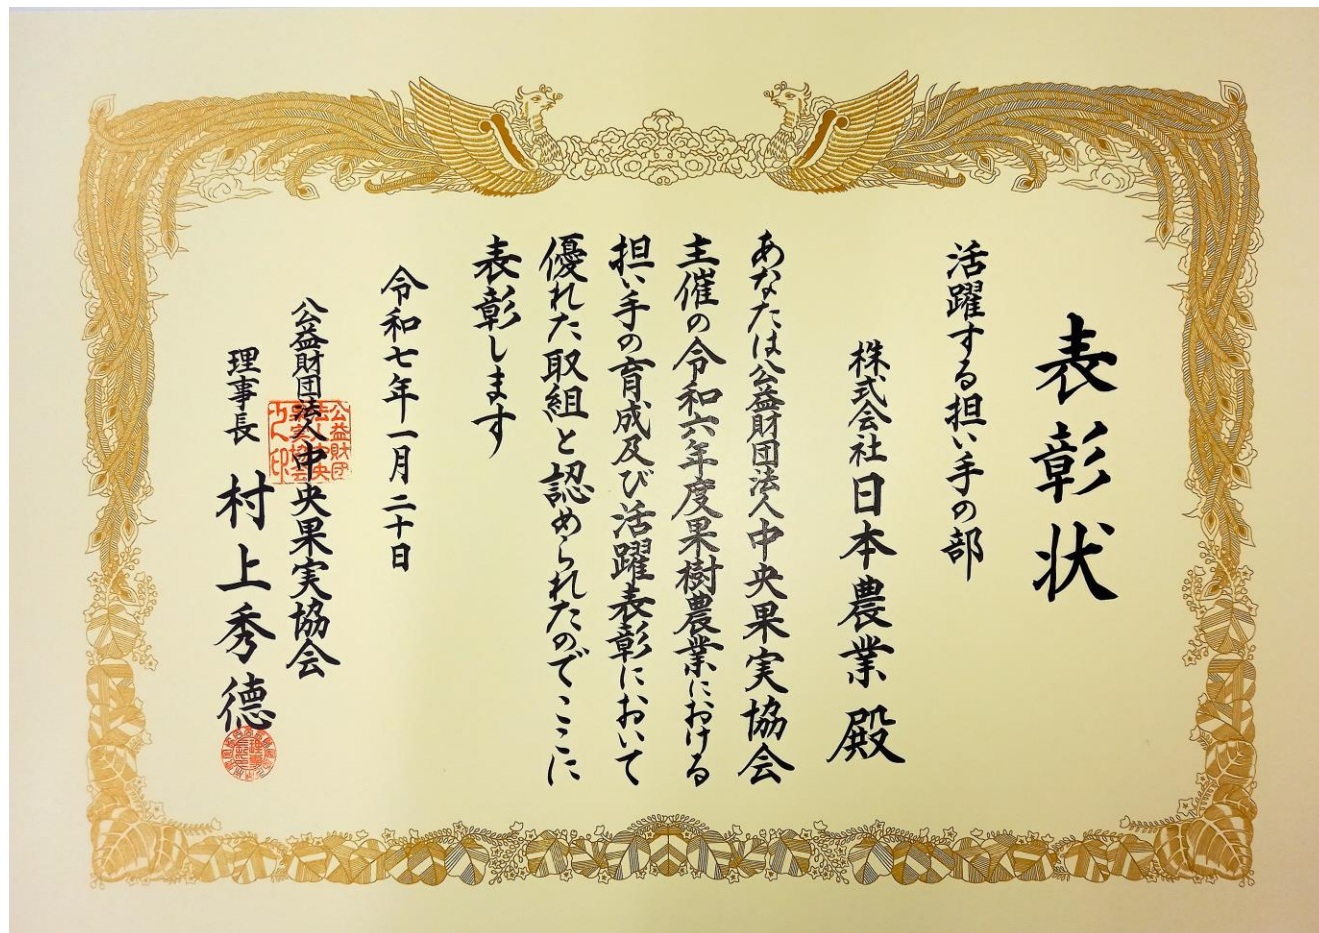 表彰状
活躍する担い手の部
株式会社日本農業 殿
あなたは公益財団法人中央果実協会
主催の令和六年度果樹農業における
担い手の育成及び活躍表彰において
優れた取組と認められたのでここに
表彰します
令和七年一月二十日
公益財団法人中央果実協会
理事長 村上秀德